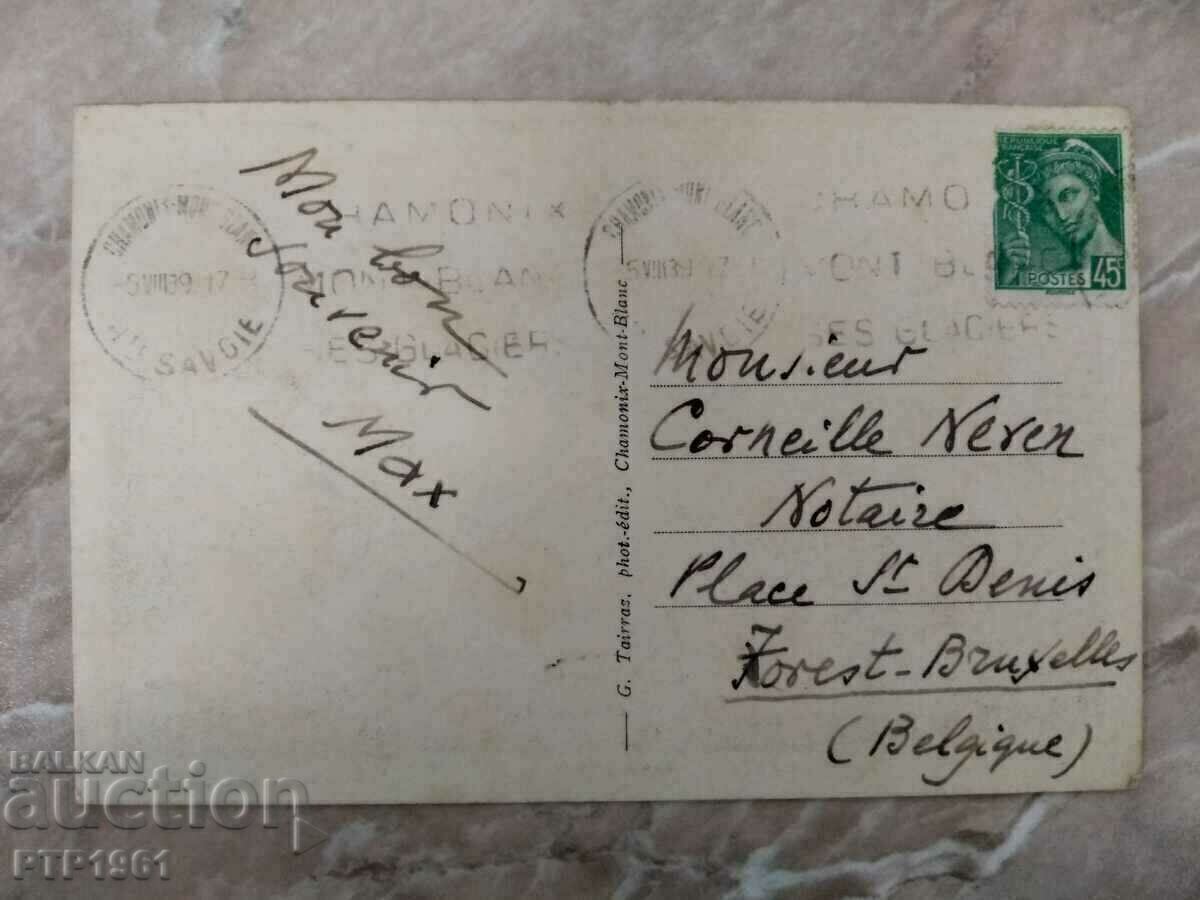 Mon bon
Souvenir
Max
CHAMONIX-MONT-BLANC
-5 VIII 39 17
HTE SAVOIE
CHAMONIX
MONT BLANC
SES GLACIERS
CHAMONIX-MONT-BLANC
5 VIII 39 17
SAVOIE
CHAMO
MONT BL
SES GLACIERS
RÉPUBLIQUE
FRANÇAISE
POSTES 45c
— G. Tairraz, phot.-édit., Chamonix-Mont-Blanc —
Monsieur
Corneille Neven
Notaire
Place St Denis
Forest-Bruxelles
(Belgique)
BALKAN
auction
PTP1961